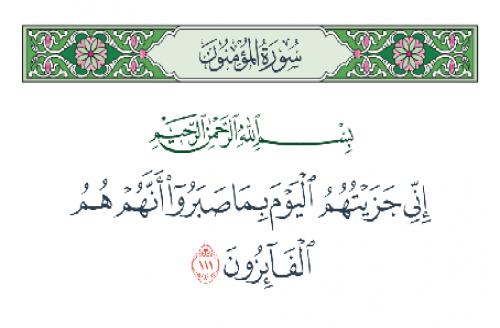 سُورَةُ المُؤْمِنُونَ
بِسْمِ اللَّهِ الرَّحْمَٰنِ الرَّحِيمِ
إِنِّي جَزَيْتُهُمُ ٱلْيَوْمَ بِمَا صَبَرُوٓاْ أَنَّهُمْ هُمُ
ٱلْفَآئِزُونَ ١١١